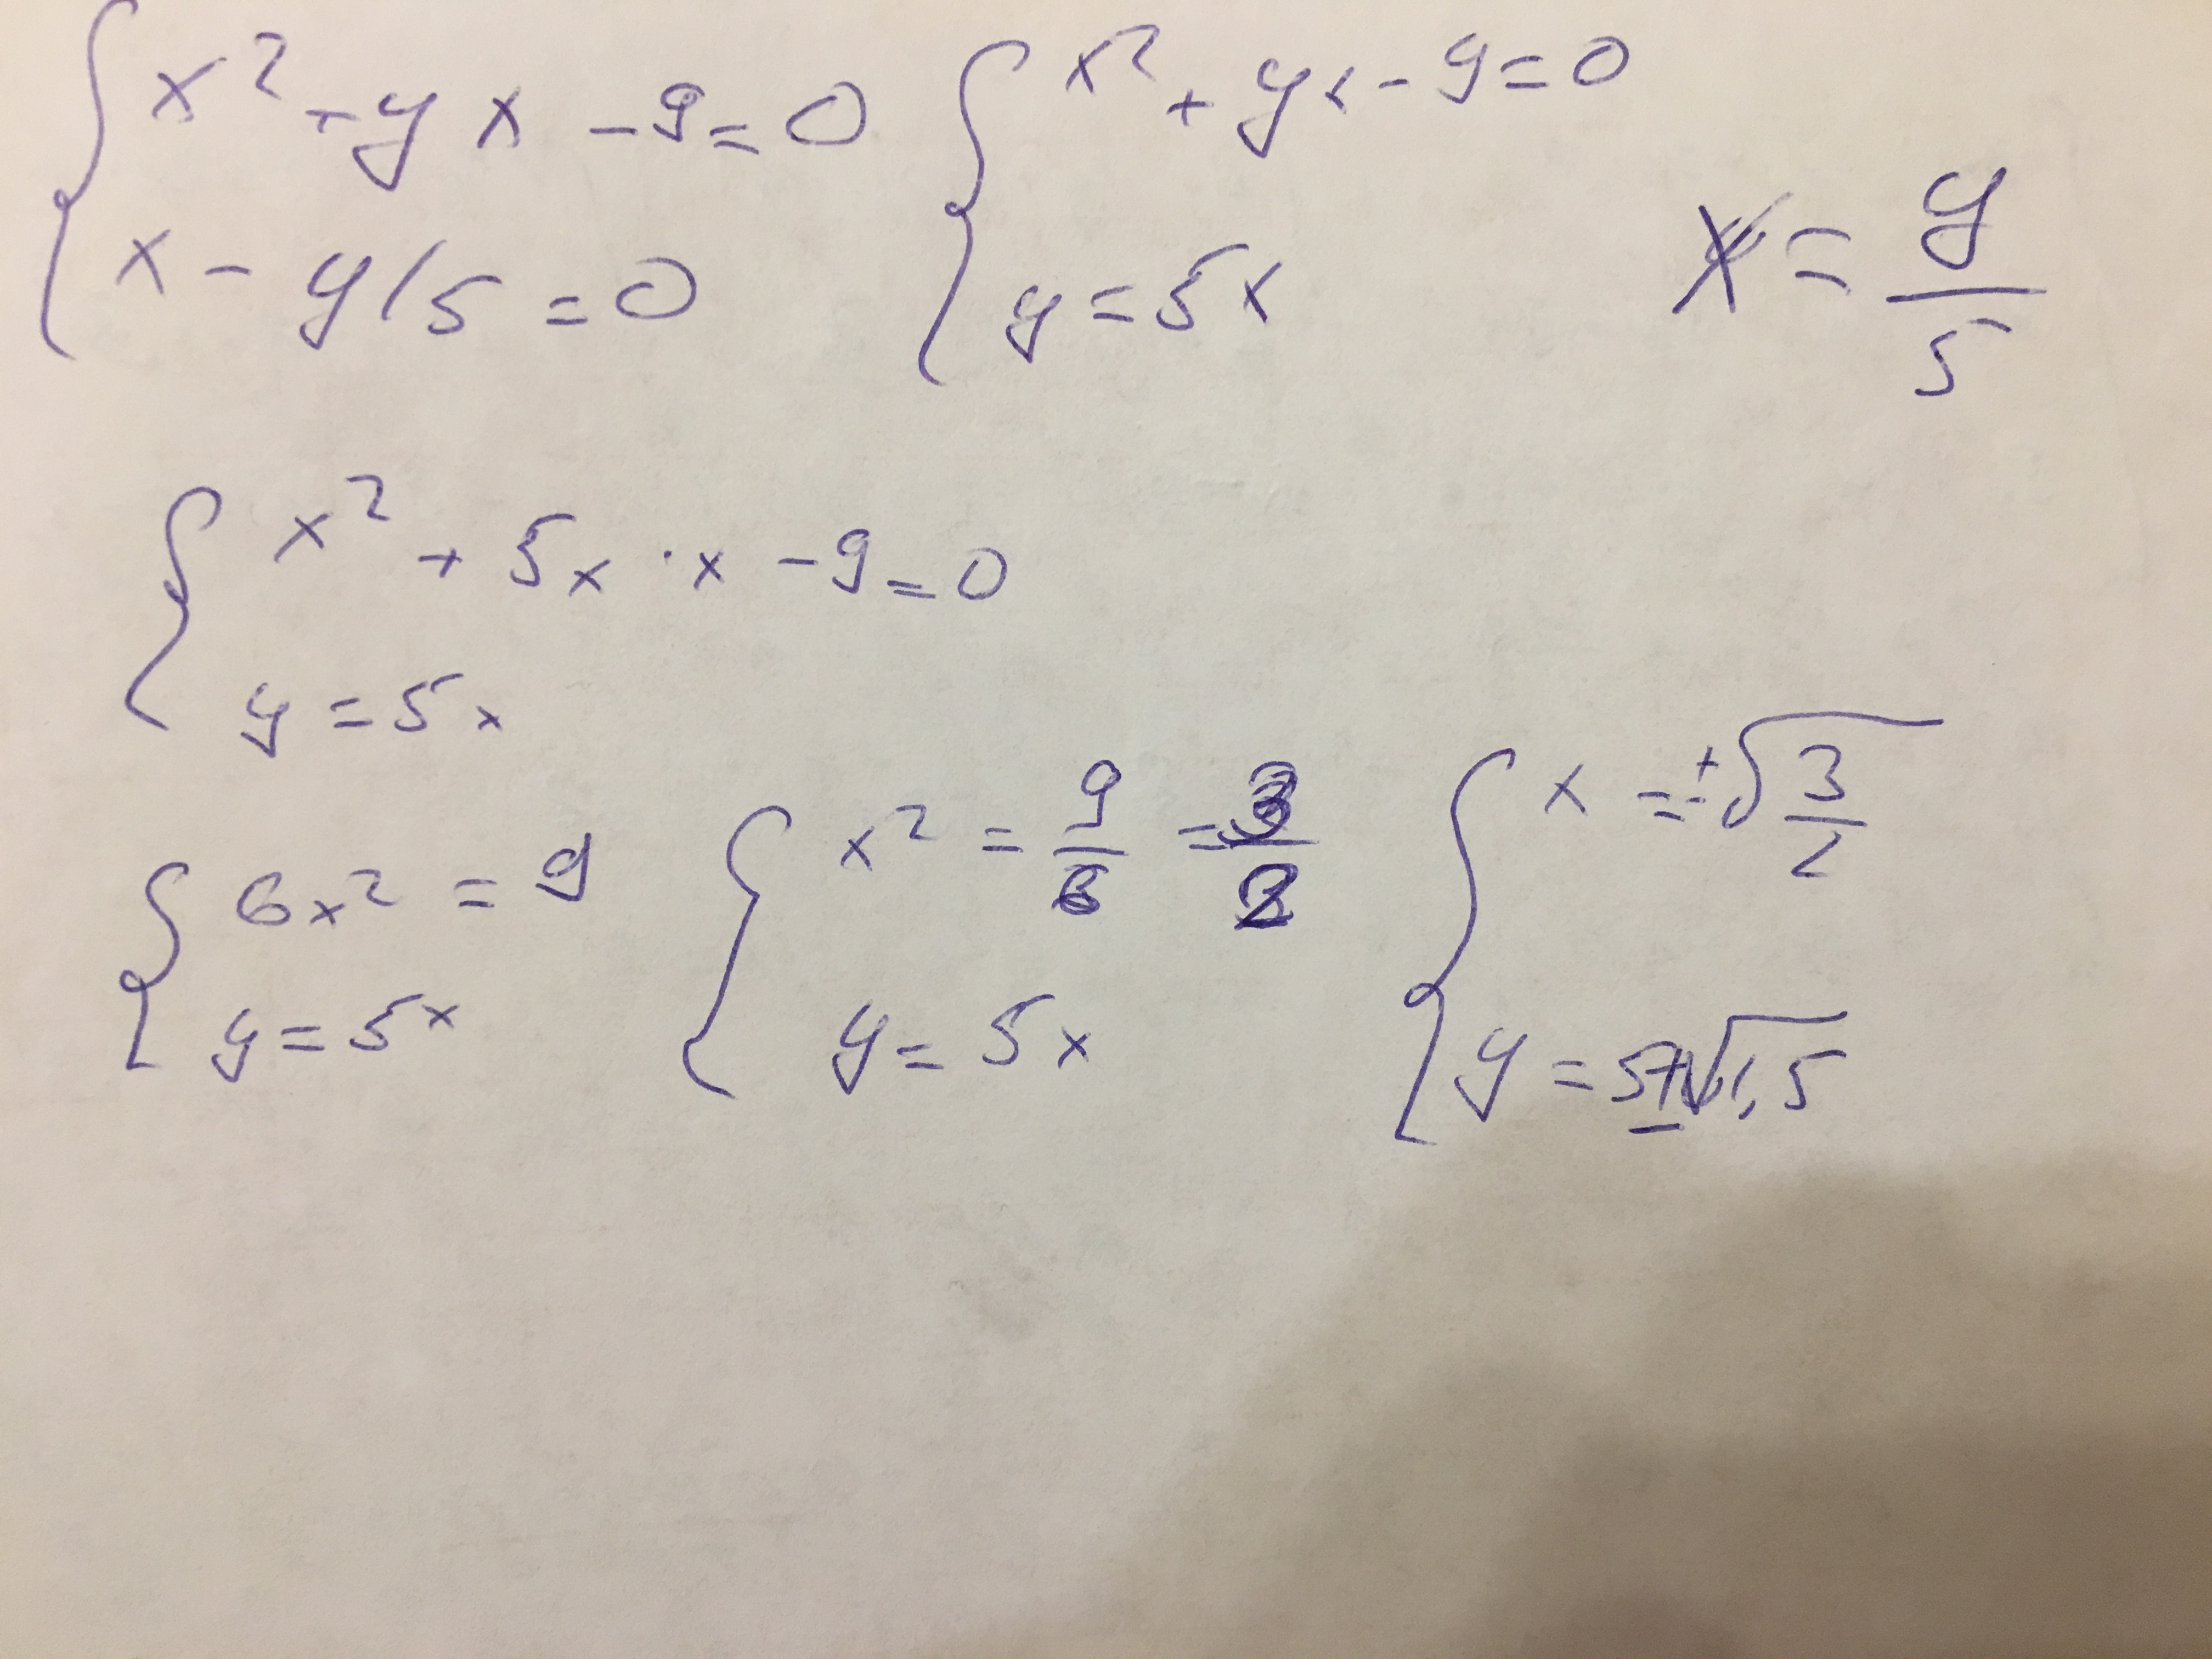 x² + yx - 9 = 0
x - y/5 = 0
x² + yx - 9 = 0
y = 5x
x = y/5
x² + 5x · x - 9 = 0
y = 5x
6x² = 9
y = 5x
x² = 9/6 = 3/2
y = 5x
x = ±√(3/2)
y = 5±√1,5